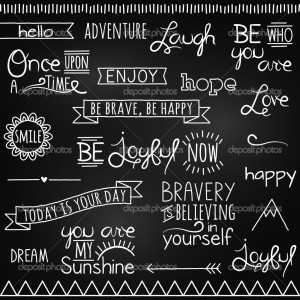 hello
ADVENTURE
Laugh
BE WHO
you are
Once UPON
A TIME
ENJOY
hope
Love
BE BRAVE, BE HAPPY
SMILE
BE Joyful NOW.
happy
TODAY IS YOUR DAY
BRAVERY
IS BELIEVING
in
yourself
you are
MY
Sunshine
DREAM
Joyful
depositphotos